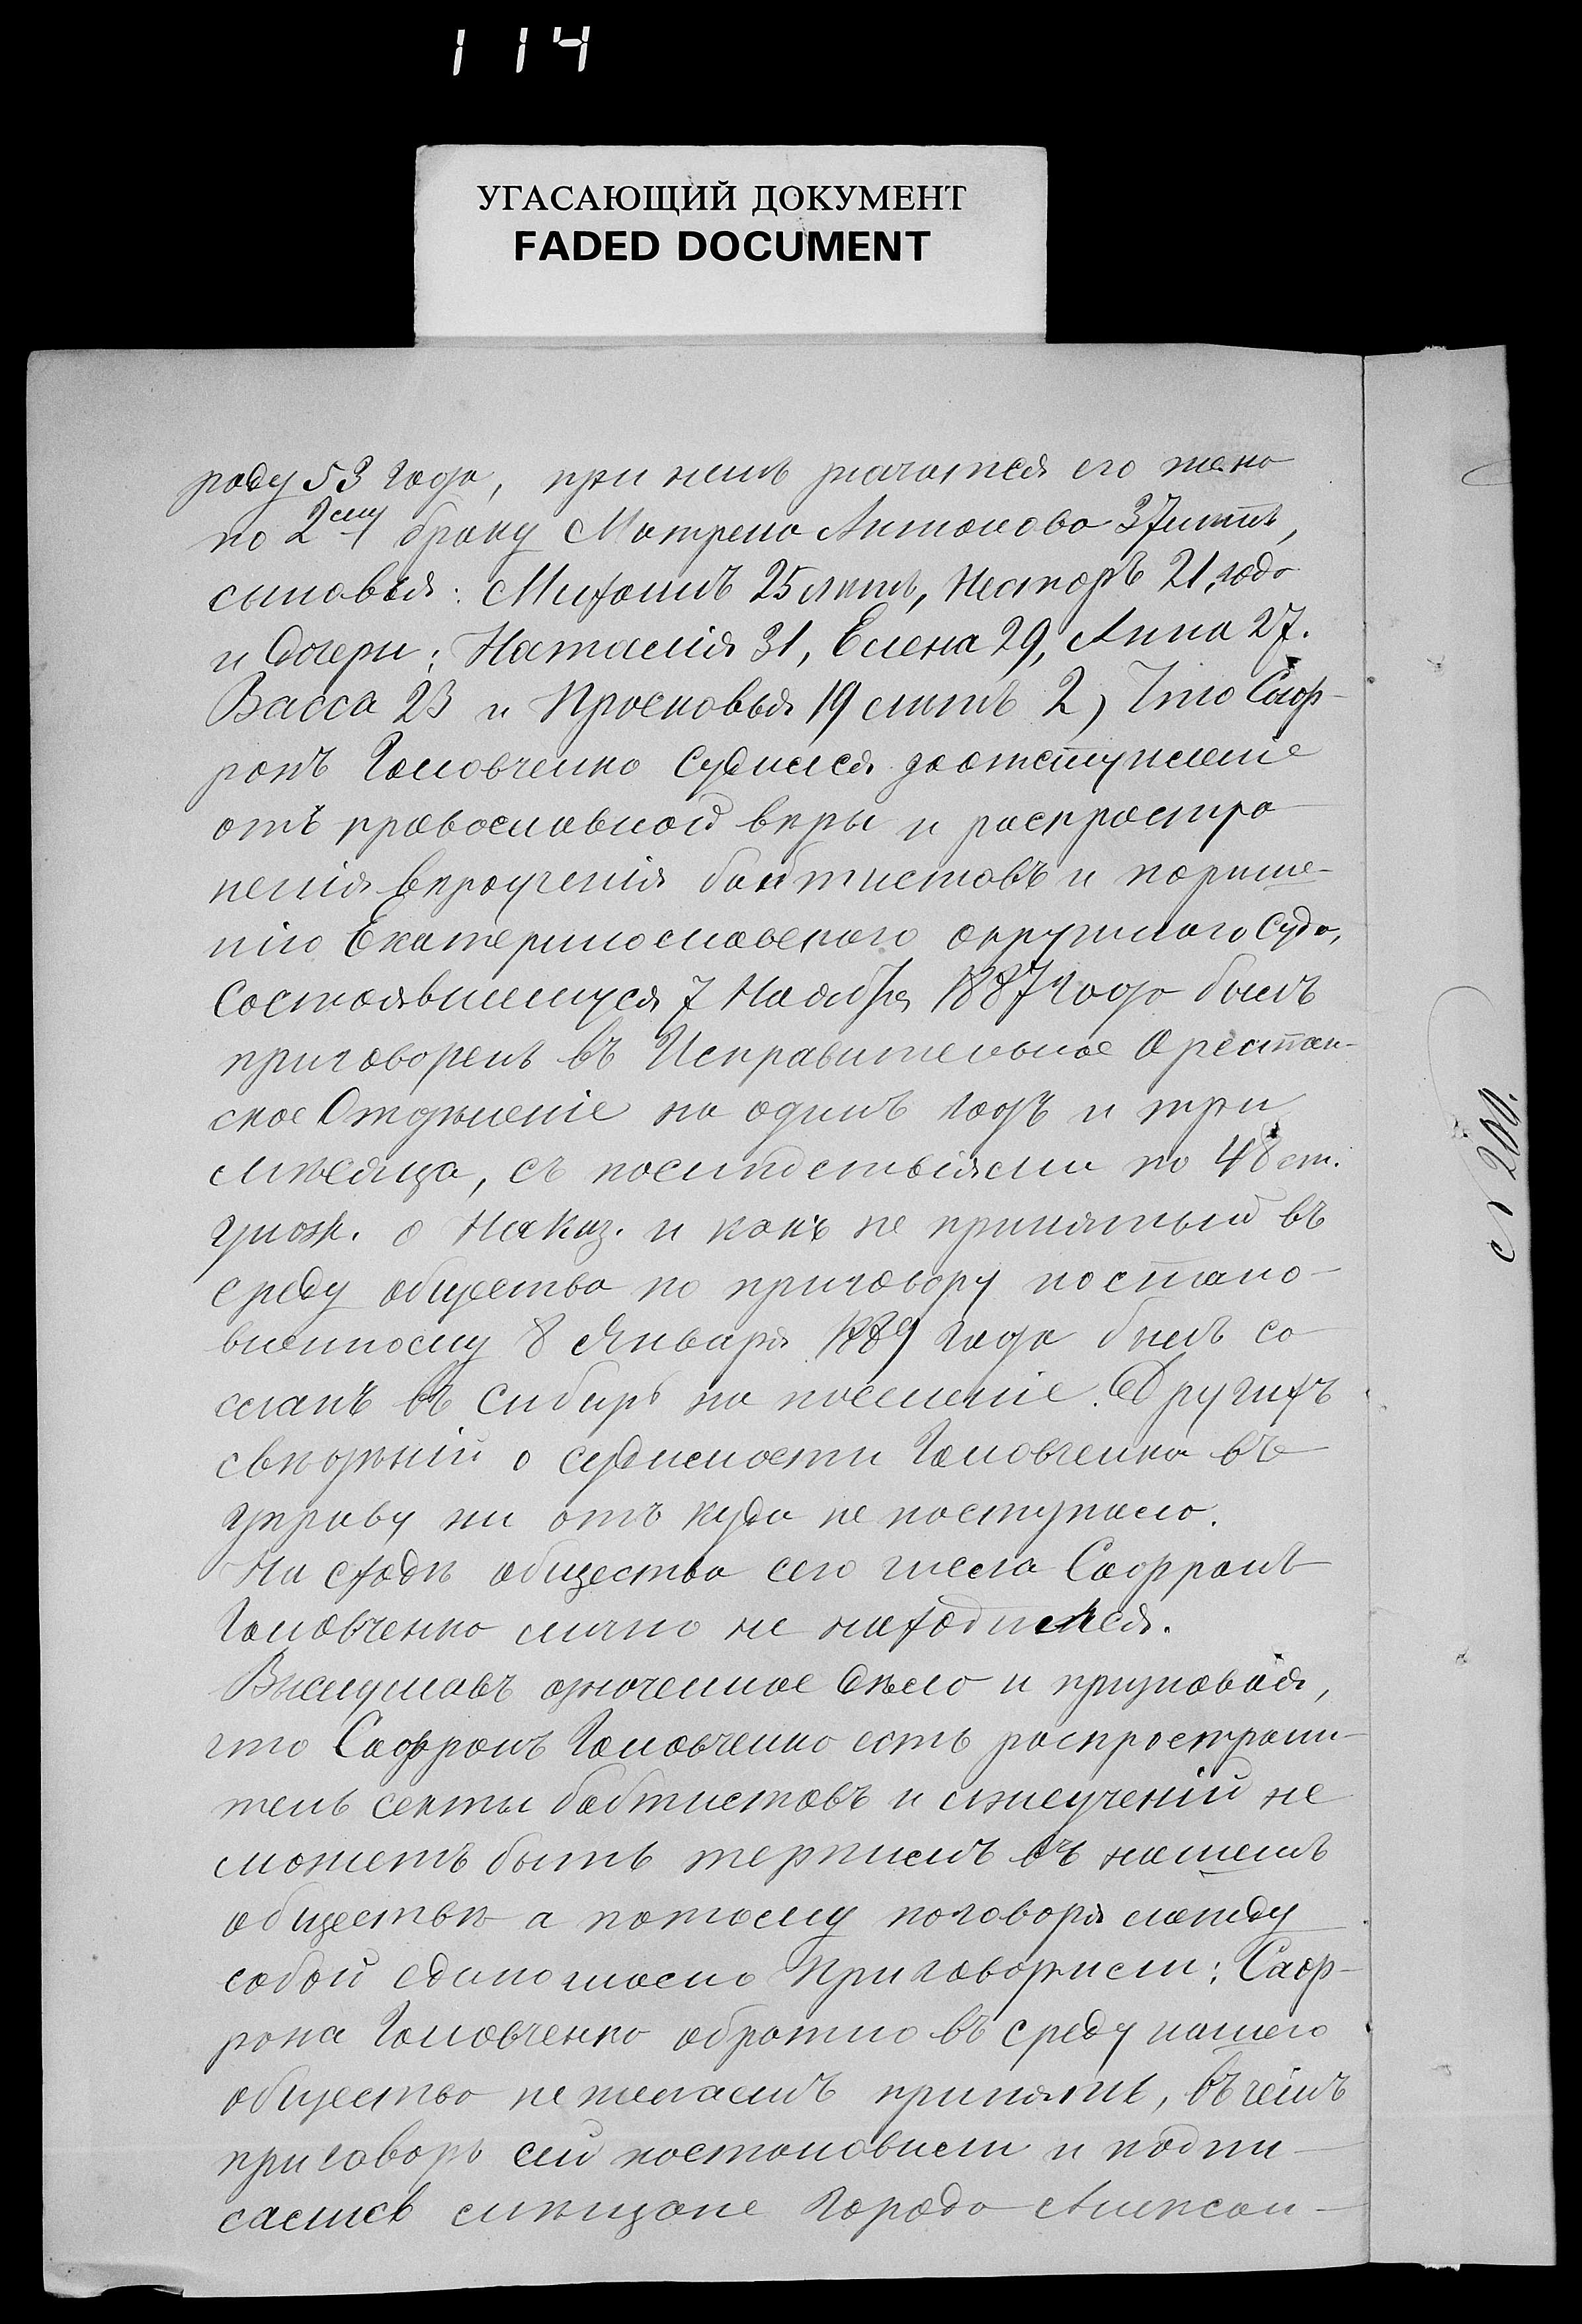 114
УГАСАЮЩИЙ ДОКУМЕНТ
FADED DOCUMENT
роду 53 года, при немъ значатся его жена
по 2ому браку Матрена Антонова 37 лѣтъ,
сыновья: Митофанъ 25 лѣтъ, Несторъ 21 года
и дочери: Наталія 31, Елена 29, Анна 27.
Васса 23 и Просковья 19 лѣтъ 2) Что Саф-
ронъ Головченко судился за отступленіе
отъ православной вѣры и распростра
ненія вѣроученія баптистовъ и по рѣше-
нію Екатеринославскаго окружнаго Суда,
состоявшемуся 7 Ноября 1887 года былъ
приговоренъ въ Исправительное Арестан-
ское Отдѣленіе на одинъ годъ и три
мѣсяца, съ послѣдствіями по 48 ст.
улож. о Наказ. и какъ не принятый въ
среду общества по приговору постано-
вленному 8 Января 1889 года былъ со
сланъ въ Сибирь на поселеніе. Другихъ
свѣдѣній о судимости Головченка въ
управу ни отъ куда не поступало.
На сходѣ общества сего числа Сафронъ
Головченко лично не находился.
Выслушавъ означенное дѣло и признавая,
что Сафронъ Головченко есть распространи-
тель секты баптистовъ и лжеученій не
можетъ быть терпимъ въ нашемъ
обществѣ а потому поговоря между
собой единогласно Приговорили: Саф-
рона Головченко обратно въ среду нашего
общество не желаемъ принять, въ чемъ
приговоръ сей постановили и подпи-
сались мѣщане Города Алексан-
л 200.